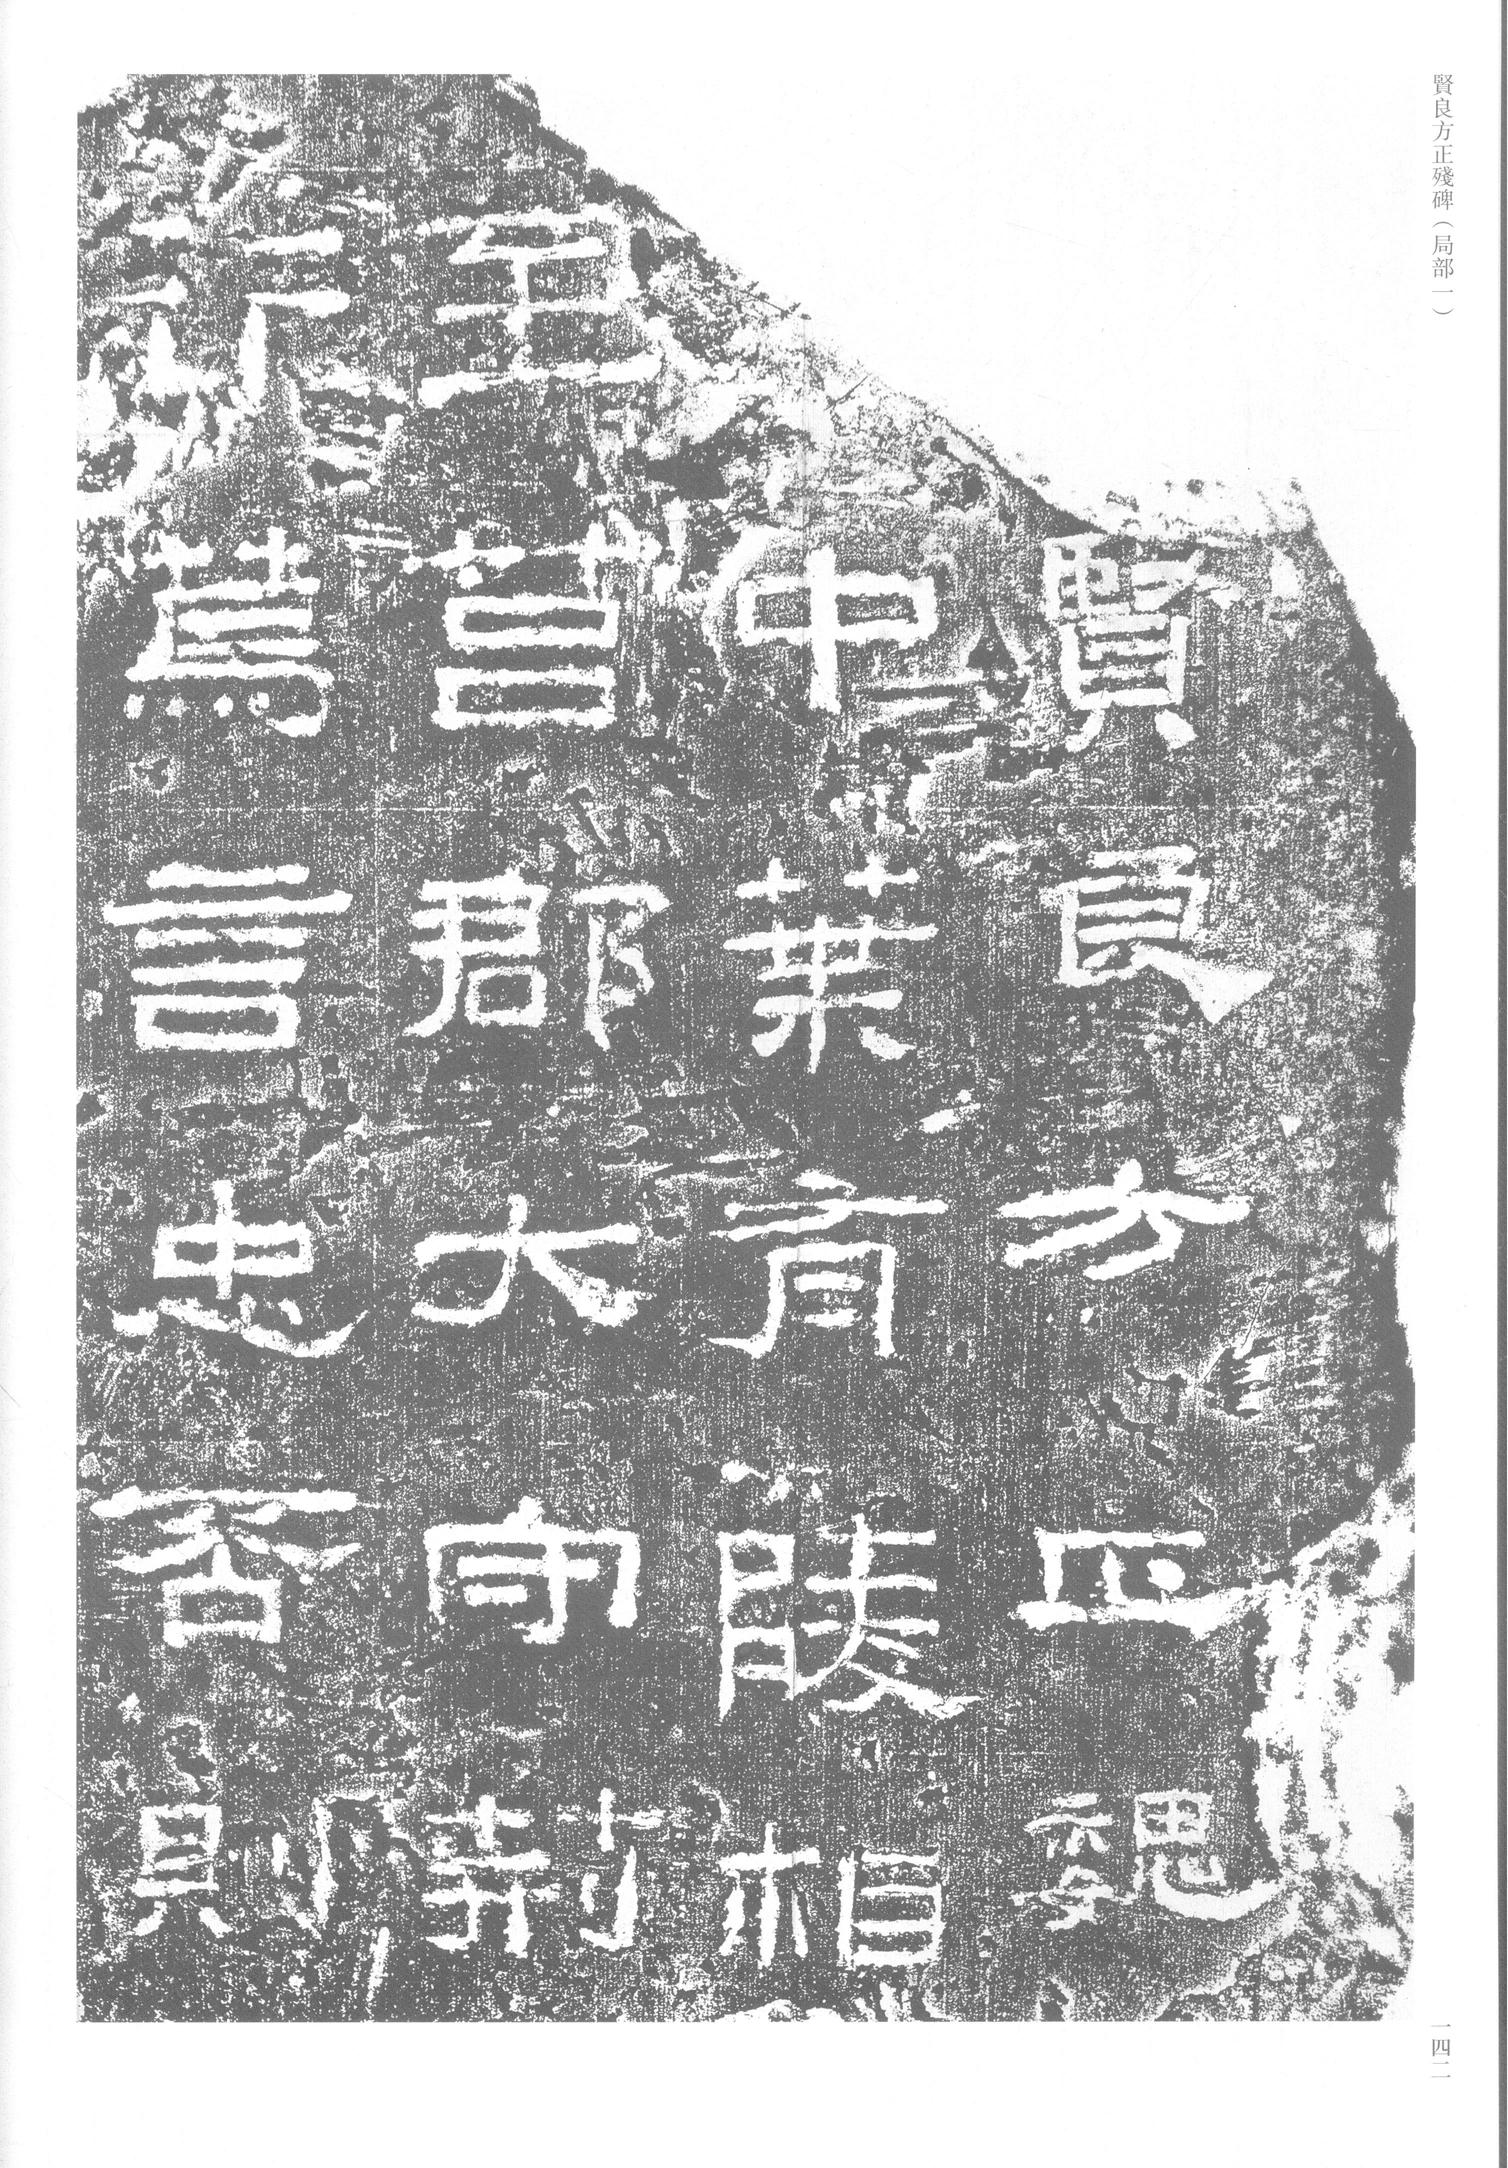 賢良方正殘碑（局部一）
賢良方正魏
中葉有陵相
郡大守荊
焉言忠否則
一四二